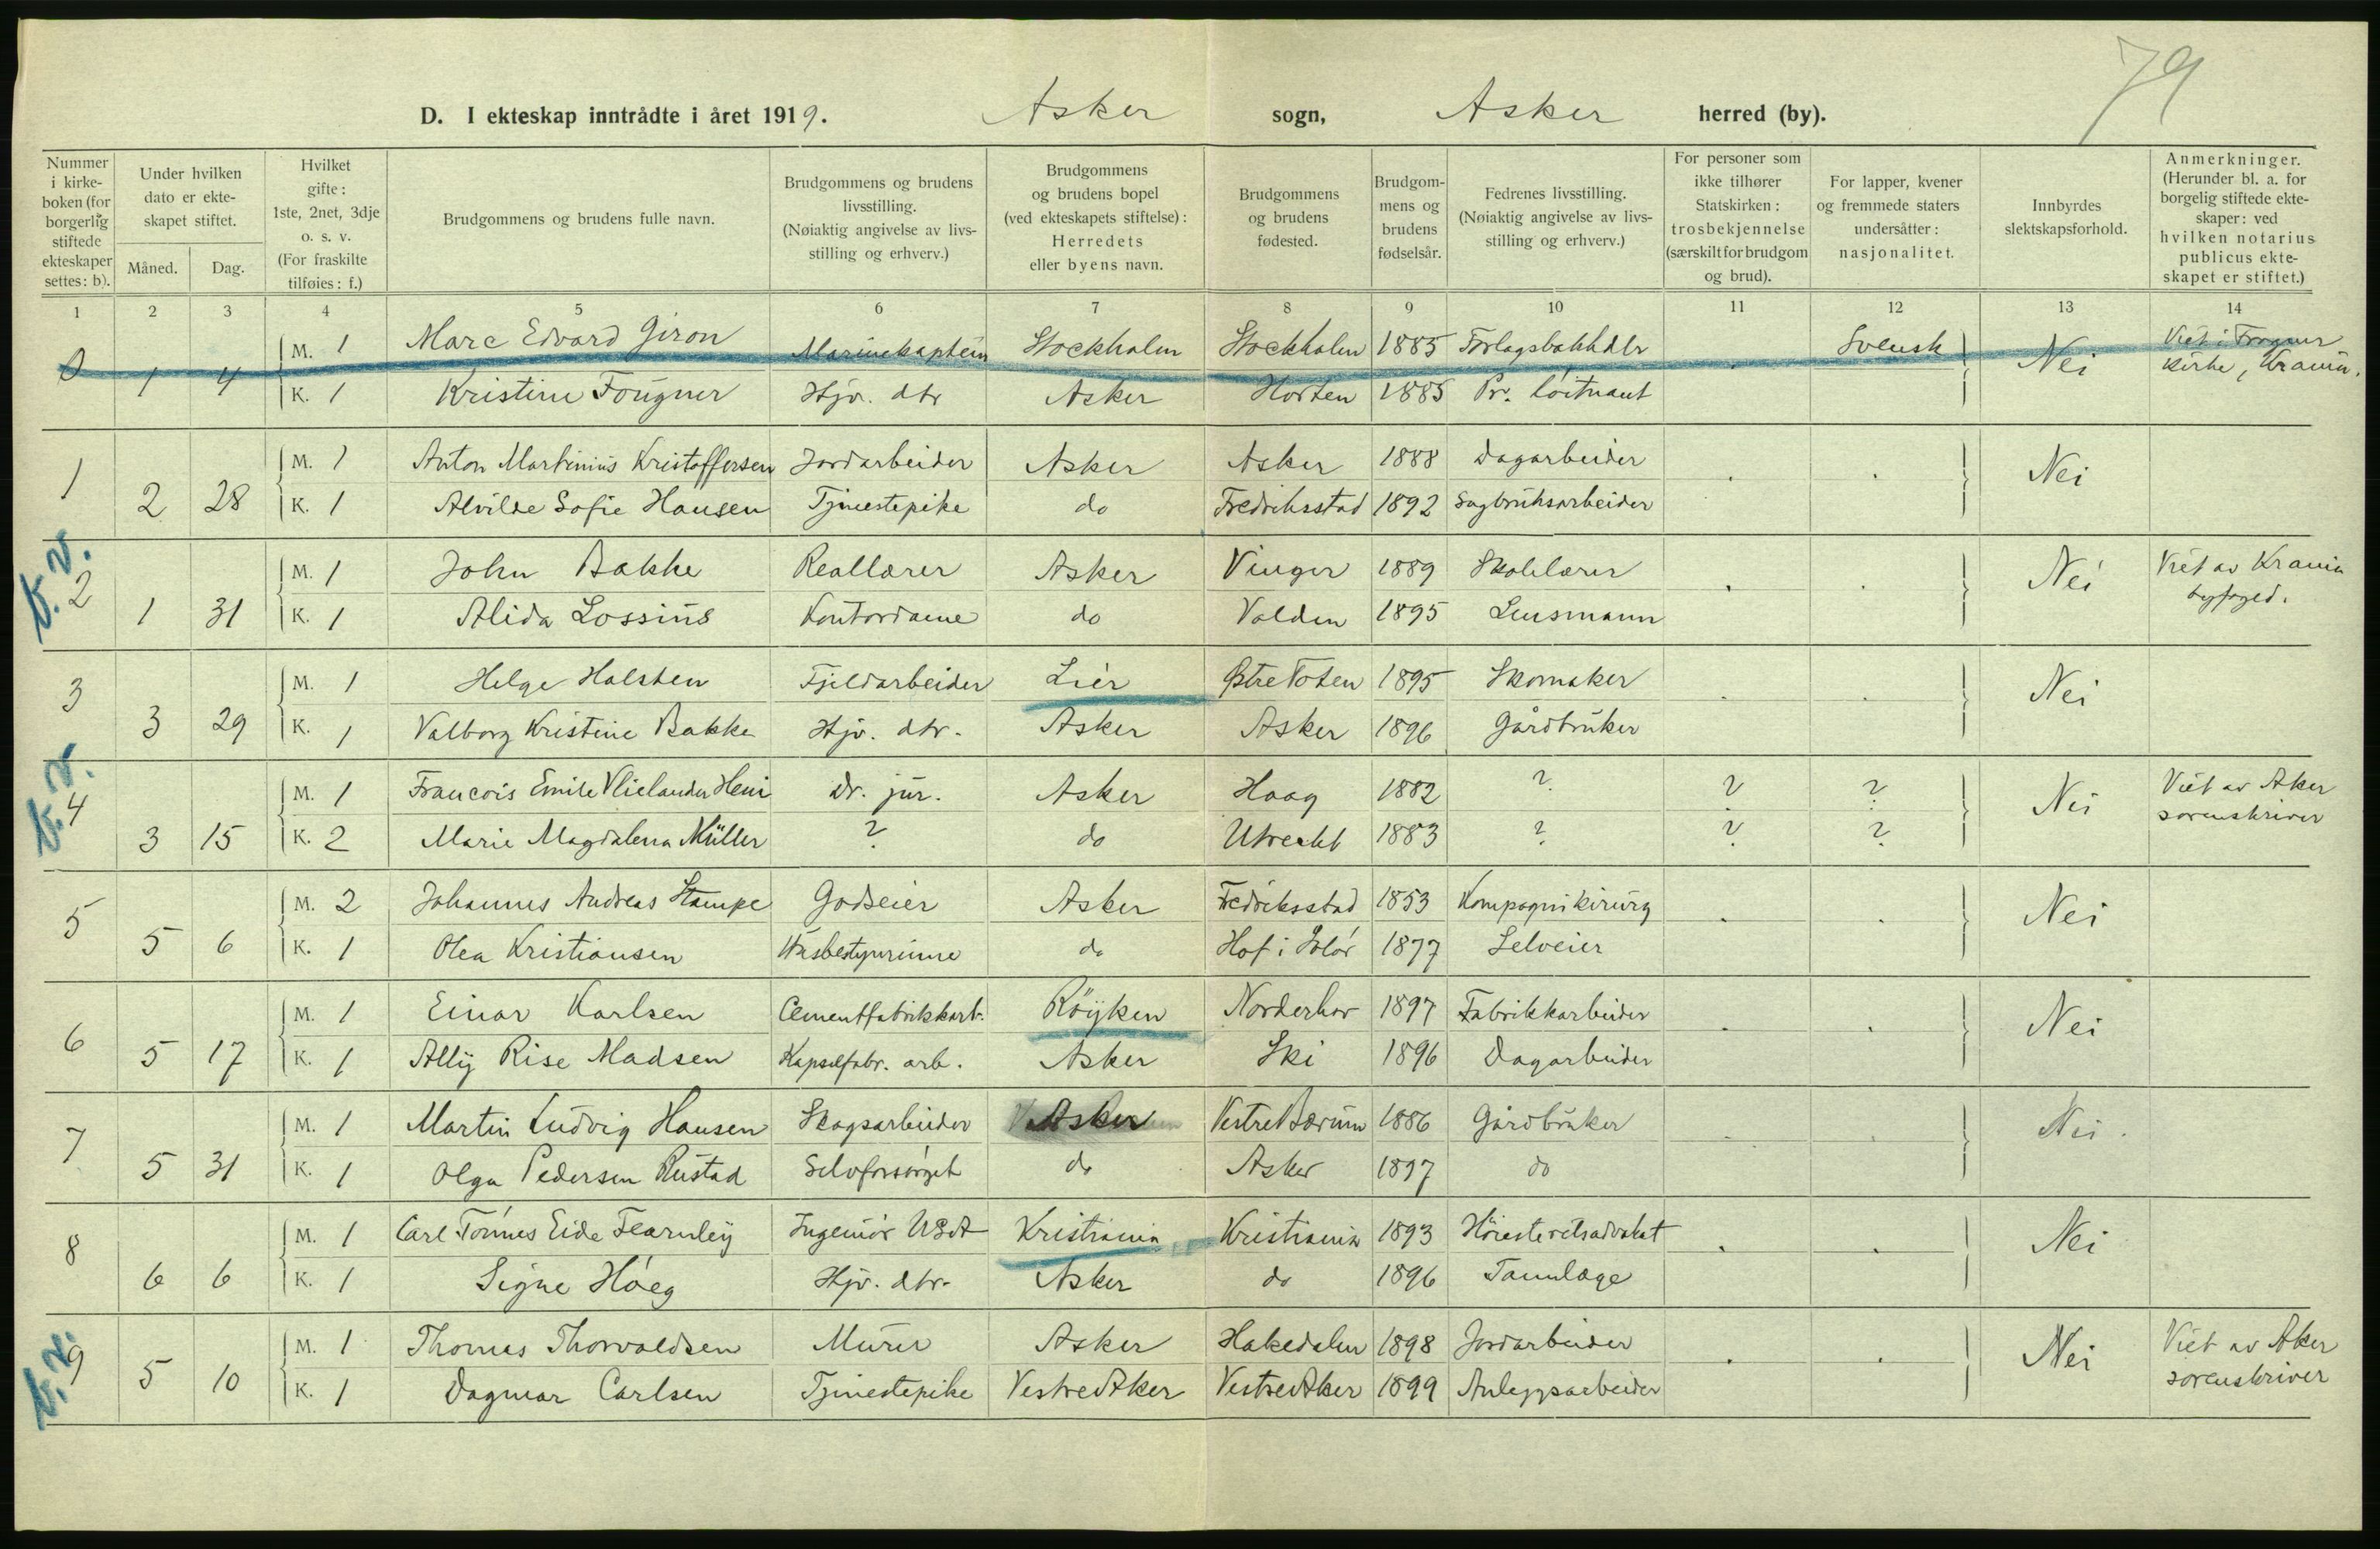 79
D. I ekteskap inntrådte i året 1919. Asker sogn, Asker herred (by).
Nummer i kirkeboken (for borgerlig stiftede ekteskaper settes: b).
Under hvilken dato er ekteskapet stiftet.
Måned. Dag.
Hvilket gifte: 1ste, 2net, 3dje o. s. v. (For fraskilte tilføies: f.)
Brudgommens og brudens fulle navn.
Brudgommens og brudens livsstilling. (Nøiaktig angivelse av livsstilling og erhverv.)
Brudgommens og brudens bopel (ved ekteskapets stiftelse): Herredets eller byens navn.
Brudgommens og brudens fødested.
Brudgommens og brudens fødselsår.
Fedrenes livsstilling. (Nøiaktig angivelse av livsstilling og erhverv.)
For personer som ikke tilhører Statskirken: trosbekjennelse (særskilt for brudgom og brud).
For lapper, kvener og fremmede staters undersåtter: nasjonalitet.
Innbyrdes slektskapsforhold.
Anmerkninger. (Herunder bl. a. for borgelig stiftede ekteskaper: ved hvilken notarius publicus ekteskapet er stiftet.)
1 2 3 4 5 6 7 8 9 10 11 12 13 14
0 1 4 M. 1 Marc Edvard Giron Marinekaptein Stockholm Stockholm 1885 Svensk Nei Viet i Frogner
K. 1 Kristine Fougner Hjv. dtr Asker Horten 1885 Pr. löitnant kirke, Krania.
1 M. 1 Anton Martinius Kristoffersen Jordarbeider Asker Asker 1888 Dagarbeider Nei
2 28 K. 1 Alvilde Sofie Hansen Tjenestepike do Fredriksstad 1892 Sagbruksarbeider
b. v.
2 M. 1 John Bakke Reallærer Asker Vinger 1889 Skolelærer Nei Viet av Krania
1 31 K. 1 Alida Lossius Kontordame do Valden 1895 Lensmann byfoged.
3 M. 1 Helge Halsten Fjeldarbeider Lier Østre Toten 1895 Skomaker Nei
3 29 K. 1 Valborg Kristine Bakke Hjv. dtr. Asker Asker 1896 Gårdbruker
b. v.
4 M. 1 Francois Emile Vlielander Hein Dr. jur. Asker Haag 1882 ? ? ? Nei Viet av Aker
3 15 K. 2 Marie Magdalena Müller ? do Utrecht 1883 ? ? ? sorenskriver
5 M. 2 Johannes Andreas Stampe Godseier Asker Fredriksstad 1853 Kompagnikirurg Nei
5 6 K. 1 Olea Kristiansen Husbestyrerinne do Hof i Solør 1877 Selveier
6 M. 1 Einar Karlsen Cementfabrikkarb. Röyken Norderhov 1897 Fabrikkarbeider Nei
5 17 K. 1 Ally Rise Madsen Kapselfabr. arb. Asker Ski 1896 Dagarbeider
7 M. 1 Martin Ludvig Hansen Skogsarbeider Asker Vestre Bærum 1886 Gårdbruker Nei.
5 31 K. 1 Olga Pedersen Rustad Selvforsörget do Asker 1897 do
8 M. 1 Carl Tönnes Eide Fearnley Ingeniör USA Kristiania Kristiania 1893 Höiesteretsadvokat Nei
6 6 K. 1 Signe Höeg Hjv. dtr. Asker do 1896 Tannlæge
b. v.
9 M. 1 Thomas Thorvaldsen Murer Asker Hakedalen 1898 Jordarbeider Nei Viet av Aker
5 10 K. 1 Dagmar Carlsen Tjenestepike Vestre Aker Vestre Aker 1899 Anleggsarbeider sorenskriver